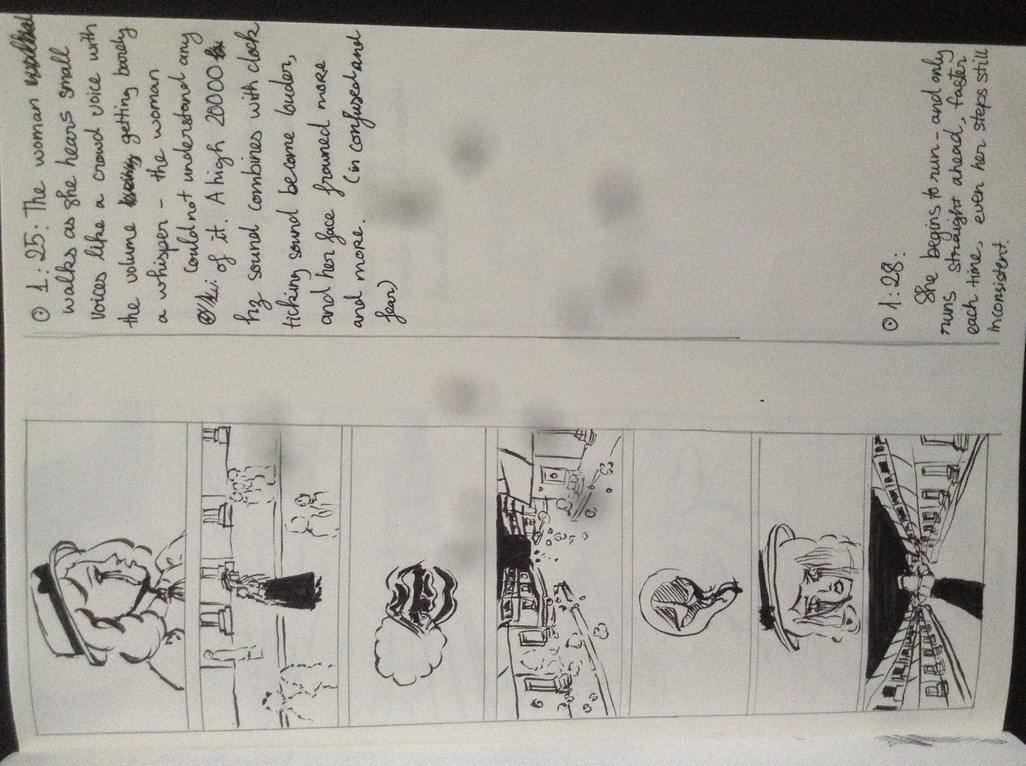 ⊙ 1:25: The woman
walks as she hears small
voices like a crowd voice with
the volume getting barely
a whisper - the woman
could not understand any
of it. A high 20000
hz sound combines with clock
ticking sound become louder,
and her face frowned more
and more. (in confused and
fear)
⊙ 1:28:
She begins to run - and only
runs straight ahead, faster
each time, even her steps still
inconsistent.